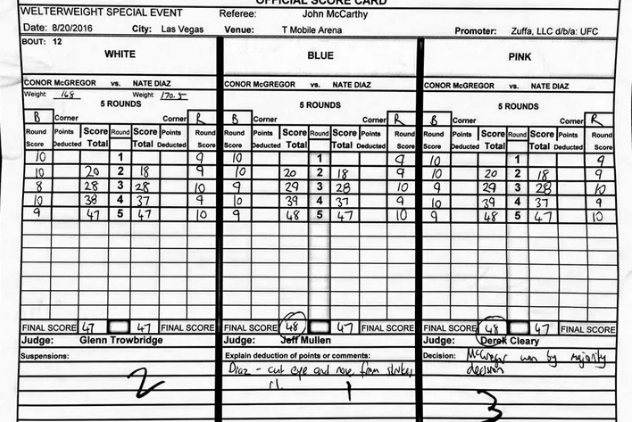 OFFICIAL SCORE CARD
WELTERWEIGHT SPECIAL EVENT Referee: John McCarthy
Date: 8/20/2016 City: Las Vegas Venue: T Mobile Arena Promoter: Zuffa, LLC d/b/a: UFC
BOUT: 12
WHITE BLUE PINK
CONOR McGREGOR vs. NATE DIAZ CONOR McGREGOR vs. NATE DIAZ CONOR McGREGOR vs. NATE DIAZ
Weight 168 Weight 170.5
5 ROUNDS 5 ROUNDS 5 ROUNDS
B Corner Corner R B Corner Corner R B Corner Corner R
Round Points Score Round Score Points Round Round Points Score Round Score Points Round Round Points Score Round Score Points Round
Score Deducted Total Total Deducted Score Score Deducted Total Total Deducted Score Score Deducted Total Total Deducted Score
10 1 9 10 1 9 10 1 9
10 20 2 18 9 10 20 2 18 9 10 20 2 18 9
8 28 3 28 10 9 29 3 28 10 9 29 3 28 10
10 38 4 37 9 10 39 4 37 9 10 39 4 37 9
9 47 5 47 10 9 48 5 47 10 9 48 5 47 10
FINAL SCORE 47 47 FINAL SCORE FINAL SCORE 48 47 FINAL SCORE FINAL SCORE 48 47 FINAL SCORE
Judge: Glenn Trowbridge Judge: Jeff Mullen Judge: Derek Cleary
Suspensions: Explain deduction of points or comments: Decision: McGregor won by majority
decision
Diaz - cut eye and nose from strikes
2 1 3